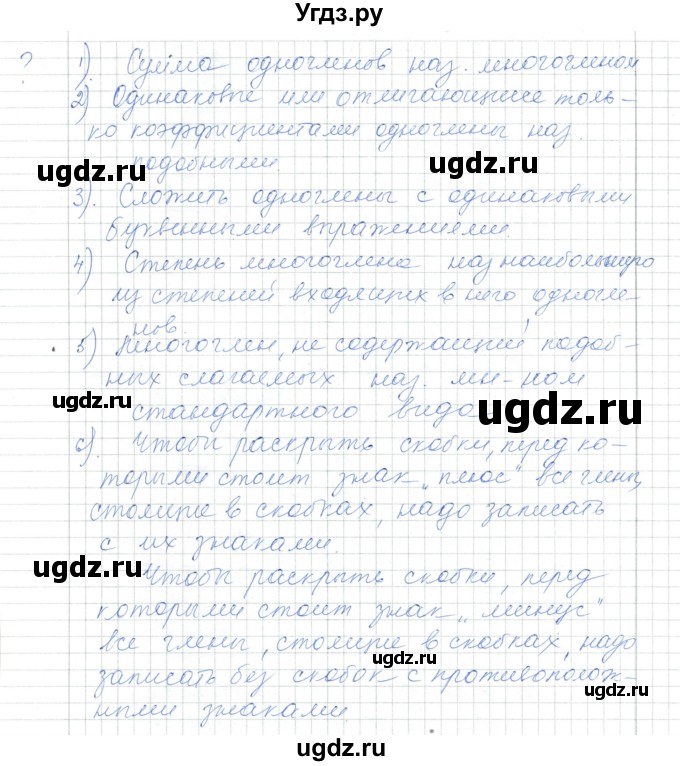 Угдз.ру
? 1). Сумма одночленов наз. многочленом
2) Одинаковые или отличающиеся толь-
ко коэффициентами одночлены наз.
подобными
ugdz.ru ugdz.ru
3). Сложить одночлены с одинаковыми
буквенными выражениями.
4) Степень многочлена наз наибольшую
из степеней входящих в него одночле-
нов.
5) Многочлен, не содержащий подоб-
ных слагаемых наз. мн-ном
стандартного вида
ugdz.ru
6). Чтобы раскрыть скобки, перед ко-
торыми стоит знак „плюс" все члены,
стоящие в скобках, надо записать
с их знаками.
ugdz.ru
Чтобы раскрыть скобки, перед
которыми стоит знак „минус"
все члены, стоящие в скобках, надо
ugdz.ru
записать без скобок с противополож-
ugdz.ru
ными знаками.
ugdz.ru